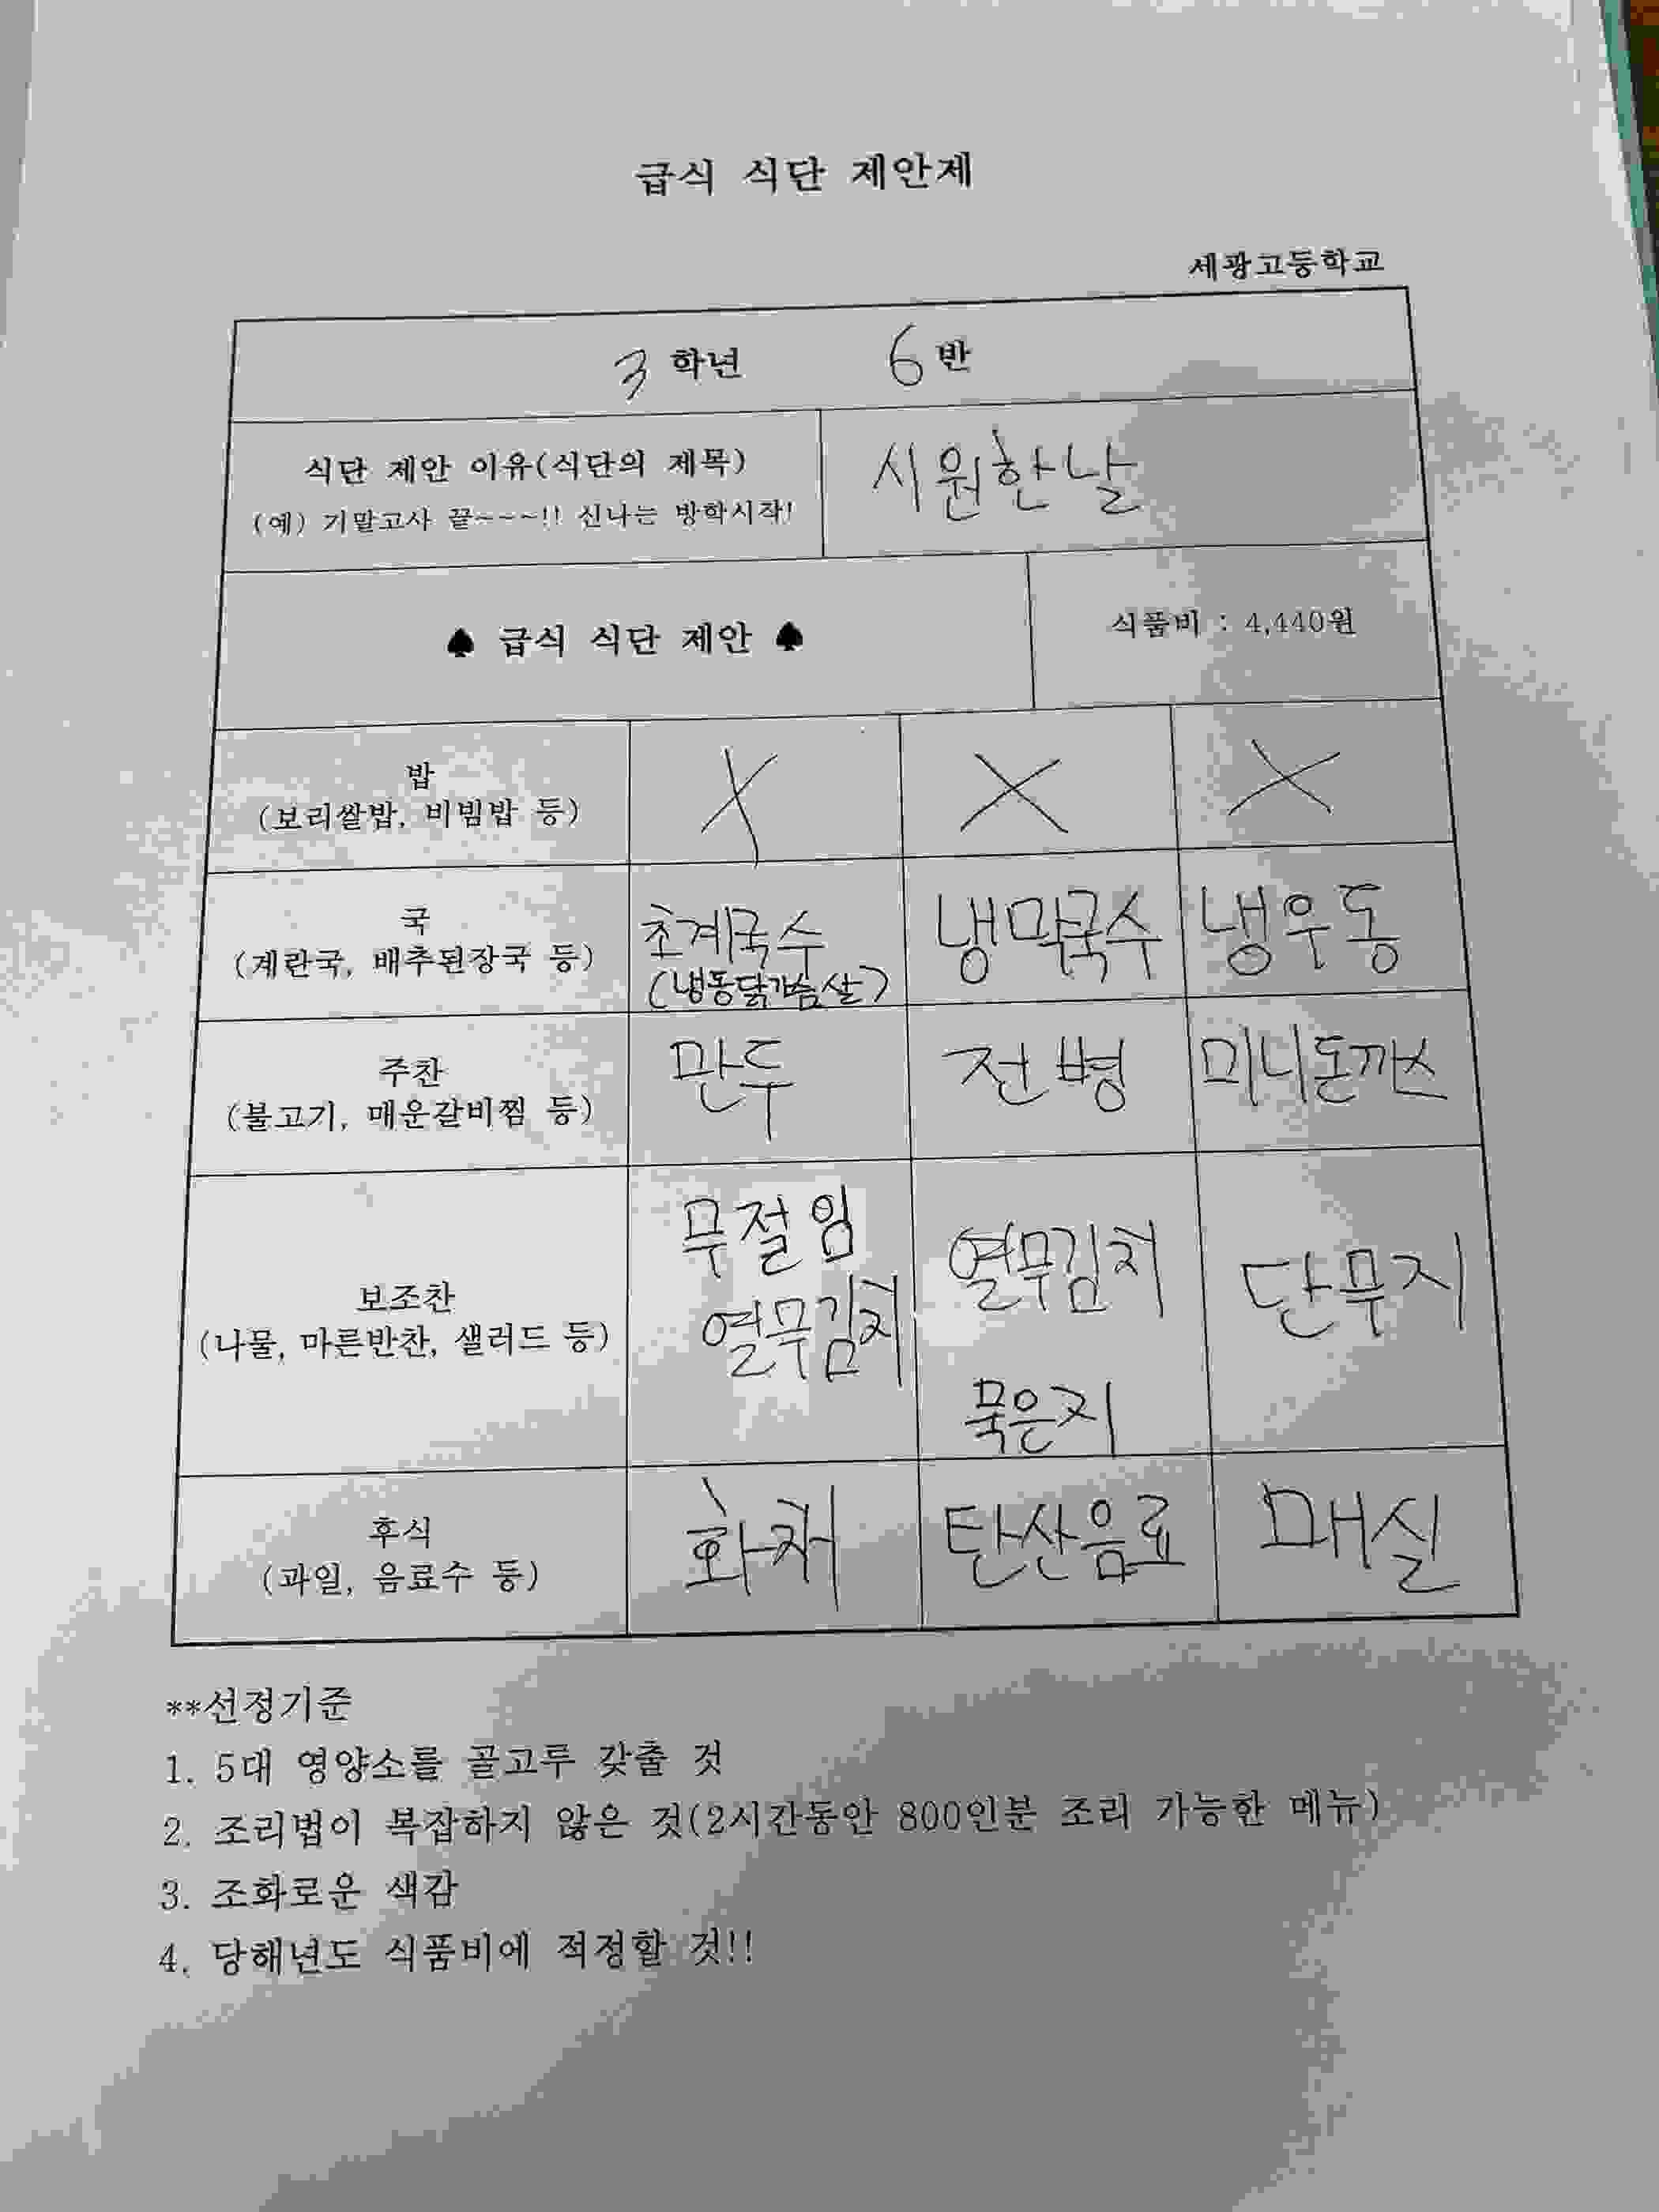 급식 식단 제안제
세광고등학교
3 학년 6 반
식단 제안 이유(식단의 제목)
(예) 기말고사 끝~~~!! 신나는 방학시작!
시원한날
♠ 급식 식단 제안 ♠
식품비 : 4,440원
밥
(보리쌀밥, 비빔밥 등)
X X X
국
(계란국, 배추된장국 등)
초계국수
(냉동닭가슴살)
냉막국수
냉우동
주찬
(불고기, 매운갈비찜 등)
만두
전병
미니돈까스
보조찬
(나물, 마른반찬, 샐러드 등)
무절임
열무김치
열무김치
묵은지
단무지
후식
(과일, 음료수 등)
화채
탄산음료
매실
**선정기준
1. 5대 영양소를 골고루 갖출 것
2. 조리법이 복잡하지 않은 것(2시간동안 800인분 조리 가능한 메뉴)
3. 조화로운 색감
4. 당해년도 식품비에 적정할 것!!